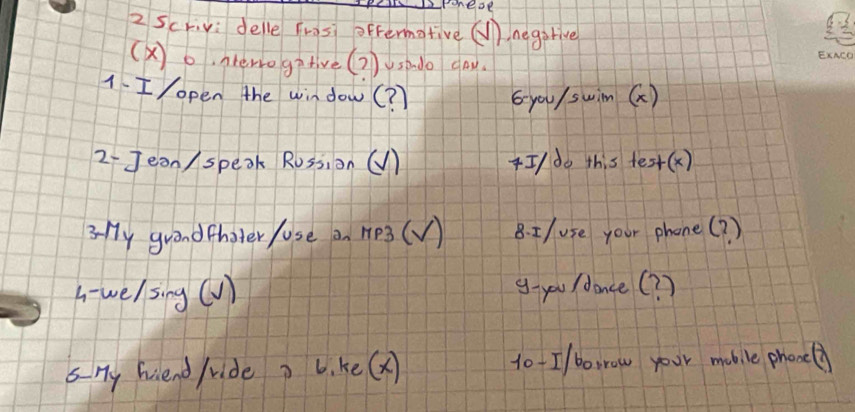 2 Scrivi delle frasi affermative (√), negative
(X) o interrogative (?) usando can.
EXACO
1-I/open the window (?)
2-Jean/speak Russian (√)
3-My grandfhater/use an MP3 (√)
4-we/sing (√)
5-My friend/ride a bike (X)
6-you/swim (x)
7 I/do this test (x)
8-I/use your phone (?)
9-you/dance (?)
10-I/borrow your mobile phone (?)